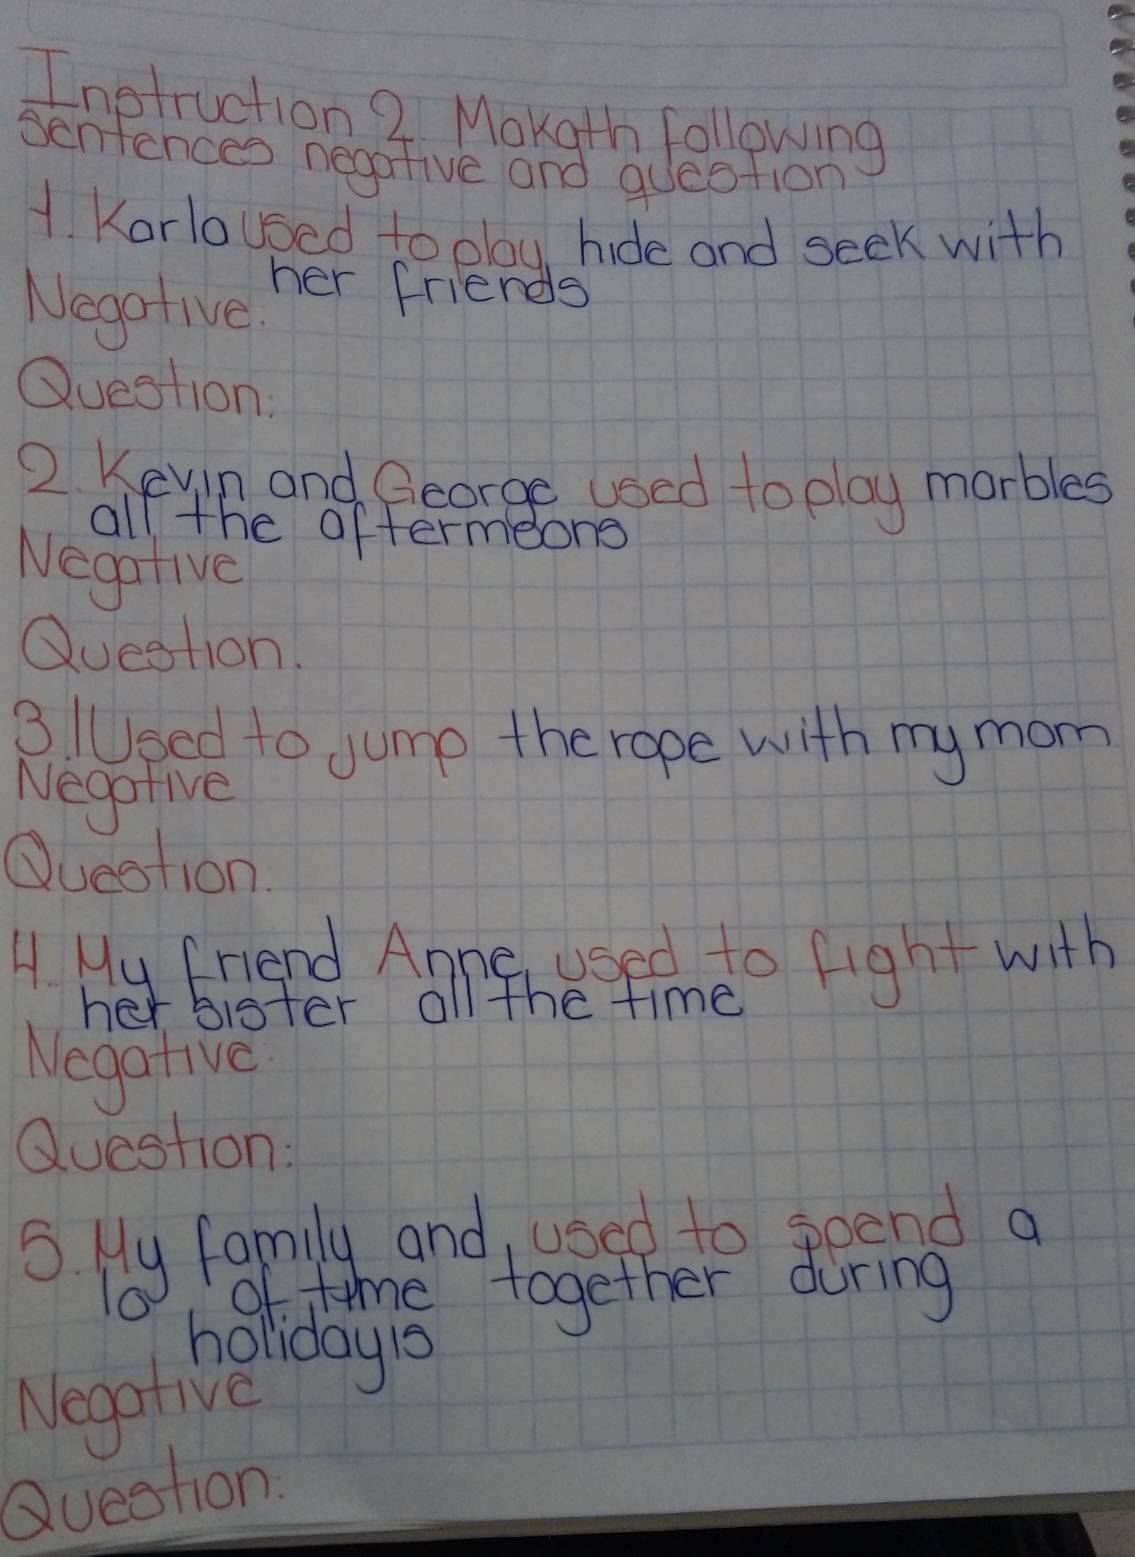 Instruction 2. Makath following
sentences negative and question
1. Karla used to play hide and seek with
her friends
Negative:
Question:
2. Kevin and George used to play marbles
all the aftermeons
Negative
Question.
3. I Used to jump the rope with my mom
Negative
Question.
4. My friend Anne, used to fight with
her sister all the time
Negative.
Question:
5. My family and, used to spend a
lo of time together during
holidayis
Negative
Question: